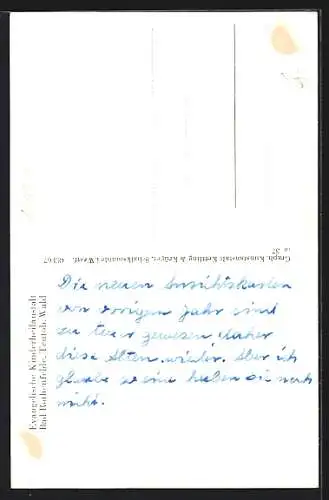 Evangelische Kinderheilanstalt
Bad Rothenfelde, Teutob. Wald
Graph. Kunstanstalt Kettling & Krüger, Schalksmühle i. Westf. 62367
Die neuen Ansichtskarten
von vorigen Jahr sind
zu teuer gewesen daher
diese Alten wieder. Aber ich
glaube so eine haben sie noch
nicht.